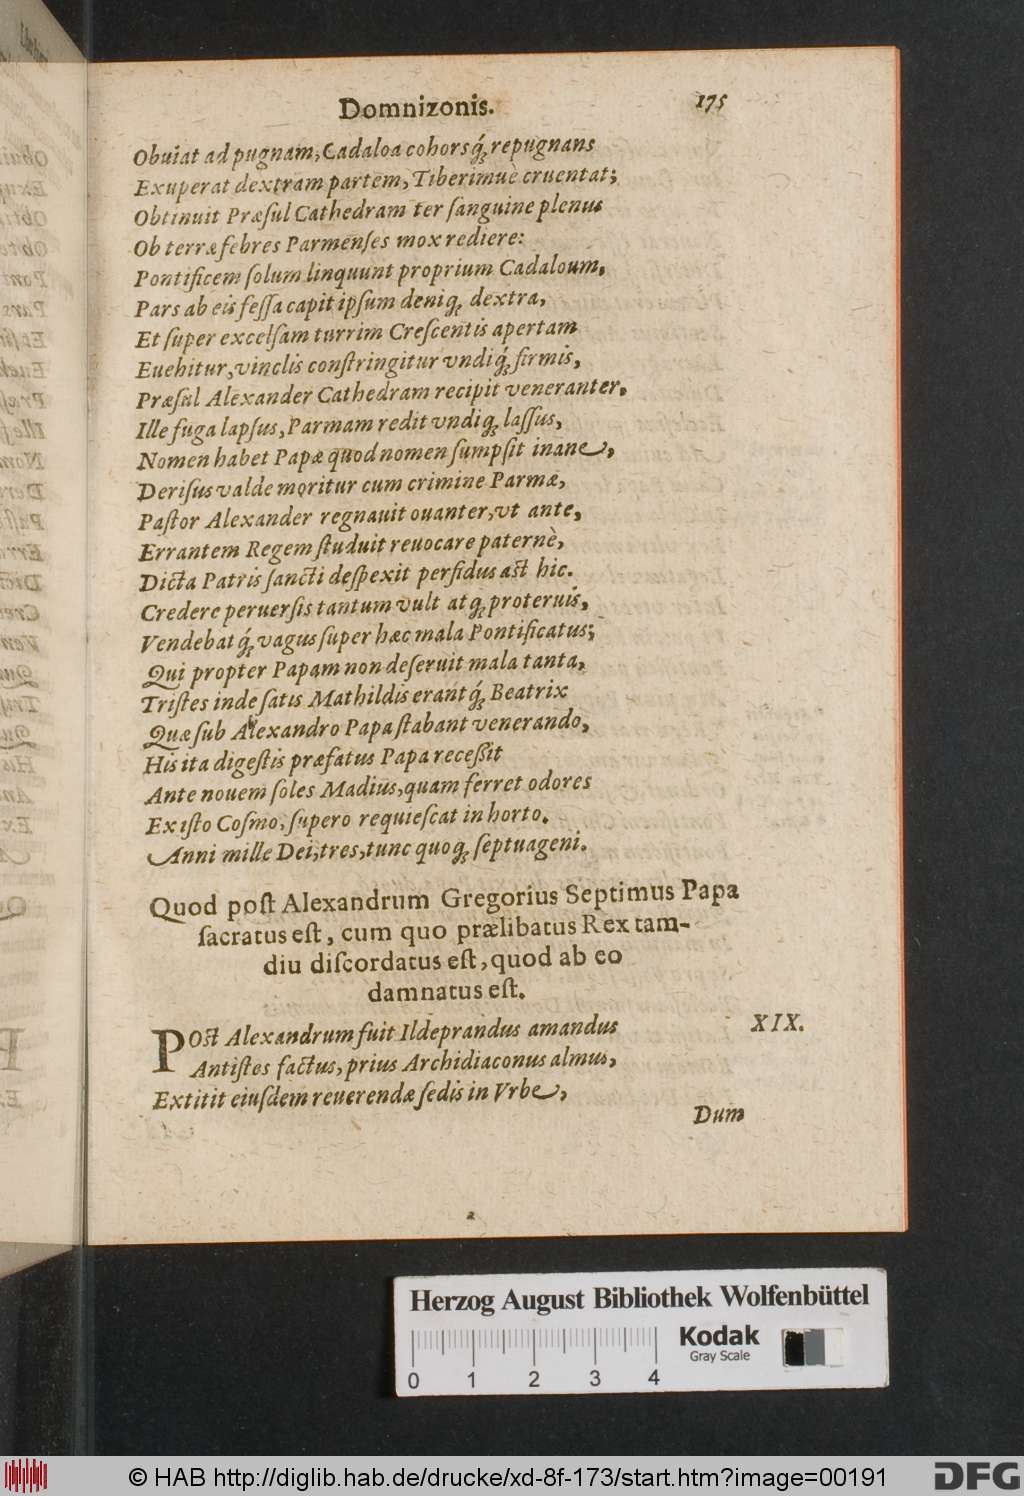 Domnizonis. 175
Obuiat ad pugnam, Cadaloa cohorsq́; repugnans
Exuperat dextram partem, Tiberimuè cruentat;
Obtinuit Præsul Cathedram ter sanguine plenus
Ob terræ febres Parmenses mox rediere:
Pontificem solum linquunt proprium Cadaloum,
Pars ab eis fessa capit ipsum deniq; dextra,
Et super excelsam turrim Crescentis apertam
Euehitur, vinclis constringitur vndiq́; firmis,
Præsul Alexander Cathedram recipit veneranter,
Ille fuga lapsus, Parmam redit vndiq; lassus,
Nomen habet Papæ quod nomen sumpsit inane,
Derisus valde moritur cum crimine Parmæ,
Pastor Alexander regnauit ouanter, vt ante,
Errantem Regem studuit reuocare paternè,
Dicta Patris sancti despexit perfidus ast hic.
Credere peruersis tantum vult atq; proteruis,
Vendebatq́; vagus super hæc mala Pontificatus;
Qui propter Papam non deseruit mala tanta,
Tristes inde satis Mathildis erantq́; Beatrix
Quæ sub Alexandro Papa stabant venerando,
His ita digestis præfatus Papa recessit
Ante nouem soles Madius, quam ferret odores
Ex isto Cosmo, supero requiescat in horto.
Anni mille Dei, tres, tunc quoq; septuageni.
Quod post Alexandrum Gregorius Septimus Papa
sacratus est, cum quo prælibatus Rex tam-
diu discordatus est, quod ab eo
damnatus est.
POst Alexandrum fuit Ildeprandus amandus XIX.
Antistes factus, prius Archidiaconus almus,
Extitit eiusdem reuerendæ sedis in Vrbe,
Dum
2
Herzog August Bibliothek Wolfenbüttel
Kodak
Gray Scale
0 1 2 3 4
© HAB http://diglib.hab.de/drucke/xd-8f-173/start.htm?image=00191
DFG